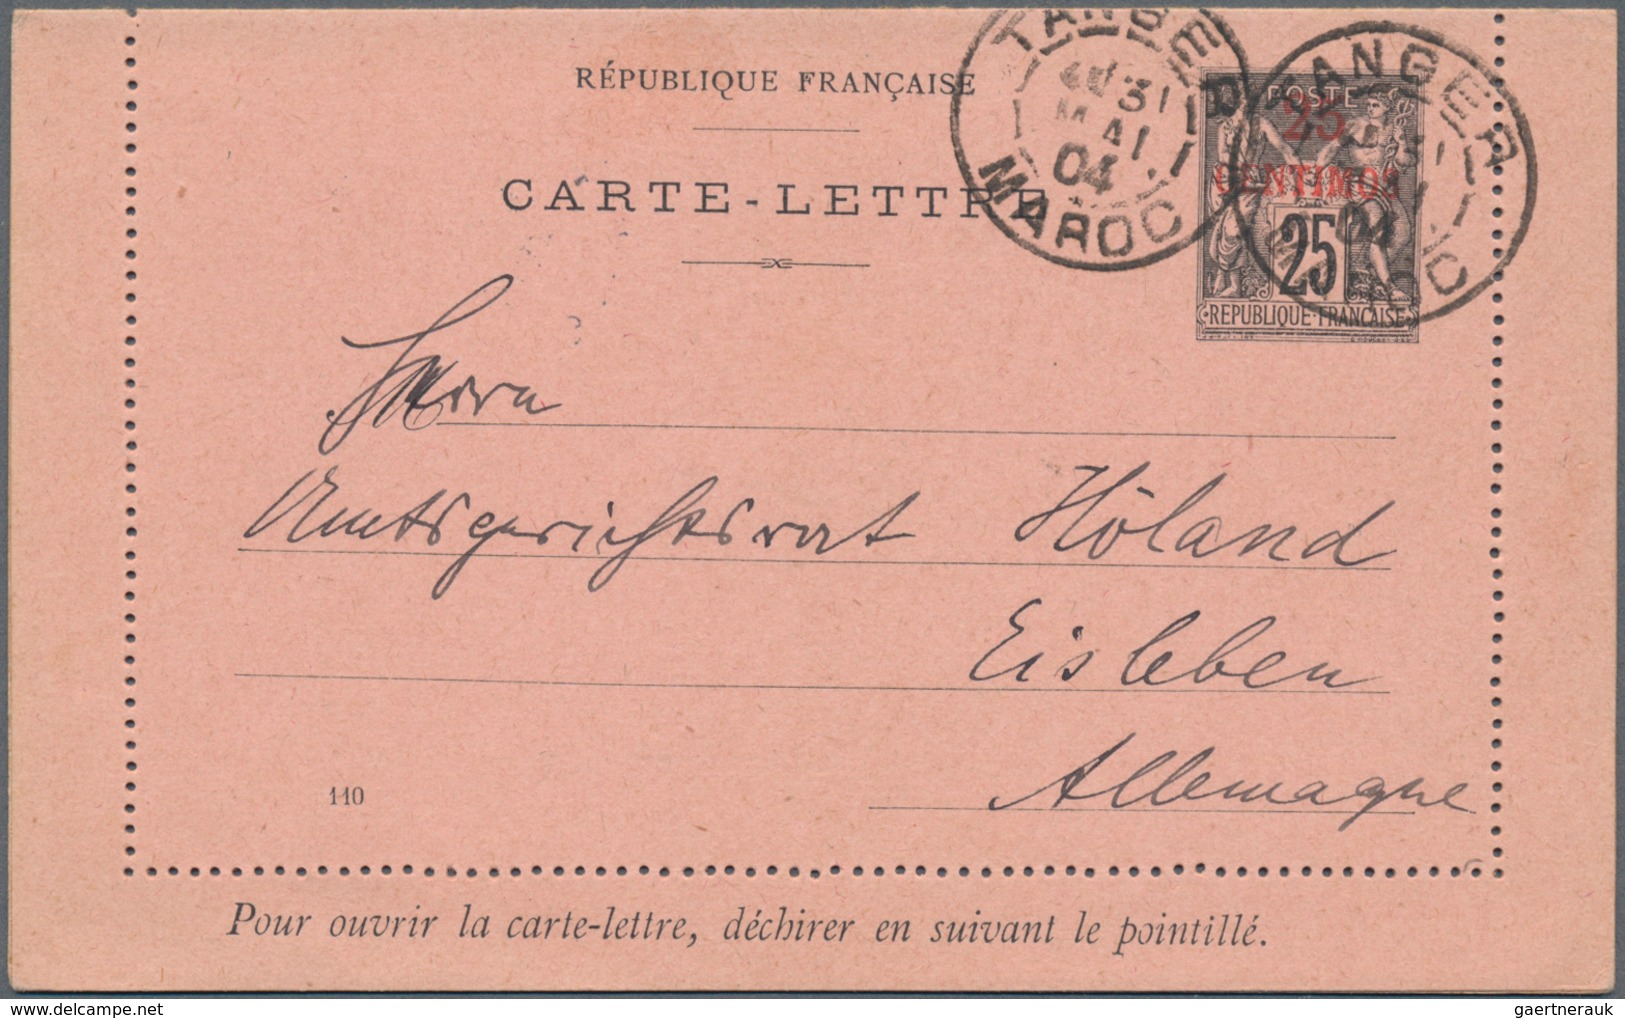 RÉPUBLIQUE FRANÇAISE
CARTE-LETTRE
TANGER
31
MAI
04
MAROC
TANGER
31
04
POSTE
25
CENTIMOS
25
REPUBLIQUE FRANCAISE
Herrn
Amtsgerichtsrat Höland
Eisleben
Allemagne
110
Pour ouvrir la carte-lettre, déchirer en suivant le pointillé.
delcampe.net
gaertnerauk